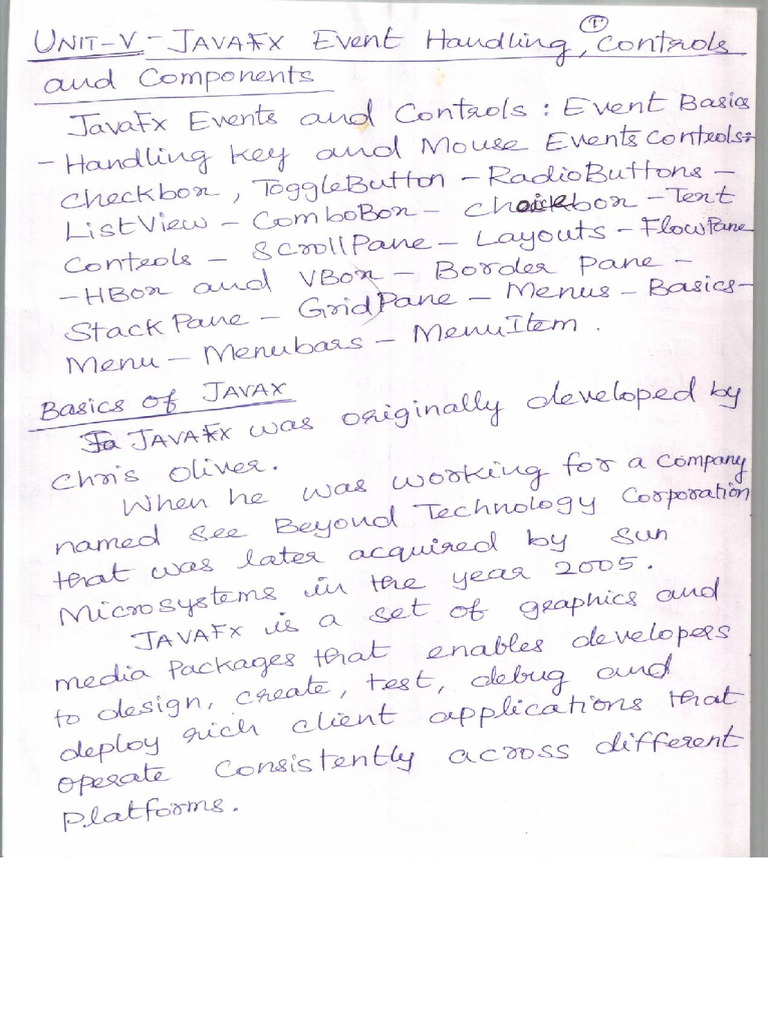 ①
UNIT-V - JAVAFX Event Handling, Controls
and Components
JavaFx Events and Controls : Event Basics
- Handling key and Mouse Events controls:
Checkbox, ToggleButton - RadioButtons -
ListView - ComboBox - Choicebox - Text
Controls - ScrollPane - Layouts - FlowPane
- HBox and VBox - Border pane -
StackPane - GridPane - Menus - Basics -
Menu - Menubars - MenuItem .
Basics of JAVAX
JAVAFX was originally developed by
Chris Oliver.
When he was working for a company
named see Beyond Technology Corporation
that was later acquired by Sun
Microsystems in the year 2005.
JAVAFx is a set of graphics and
media packages that enables developers
to design, create, test, debug and
deploy rich client applications that
operate consistently across different
platforms.